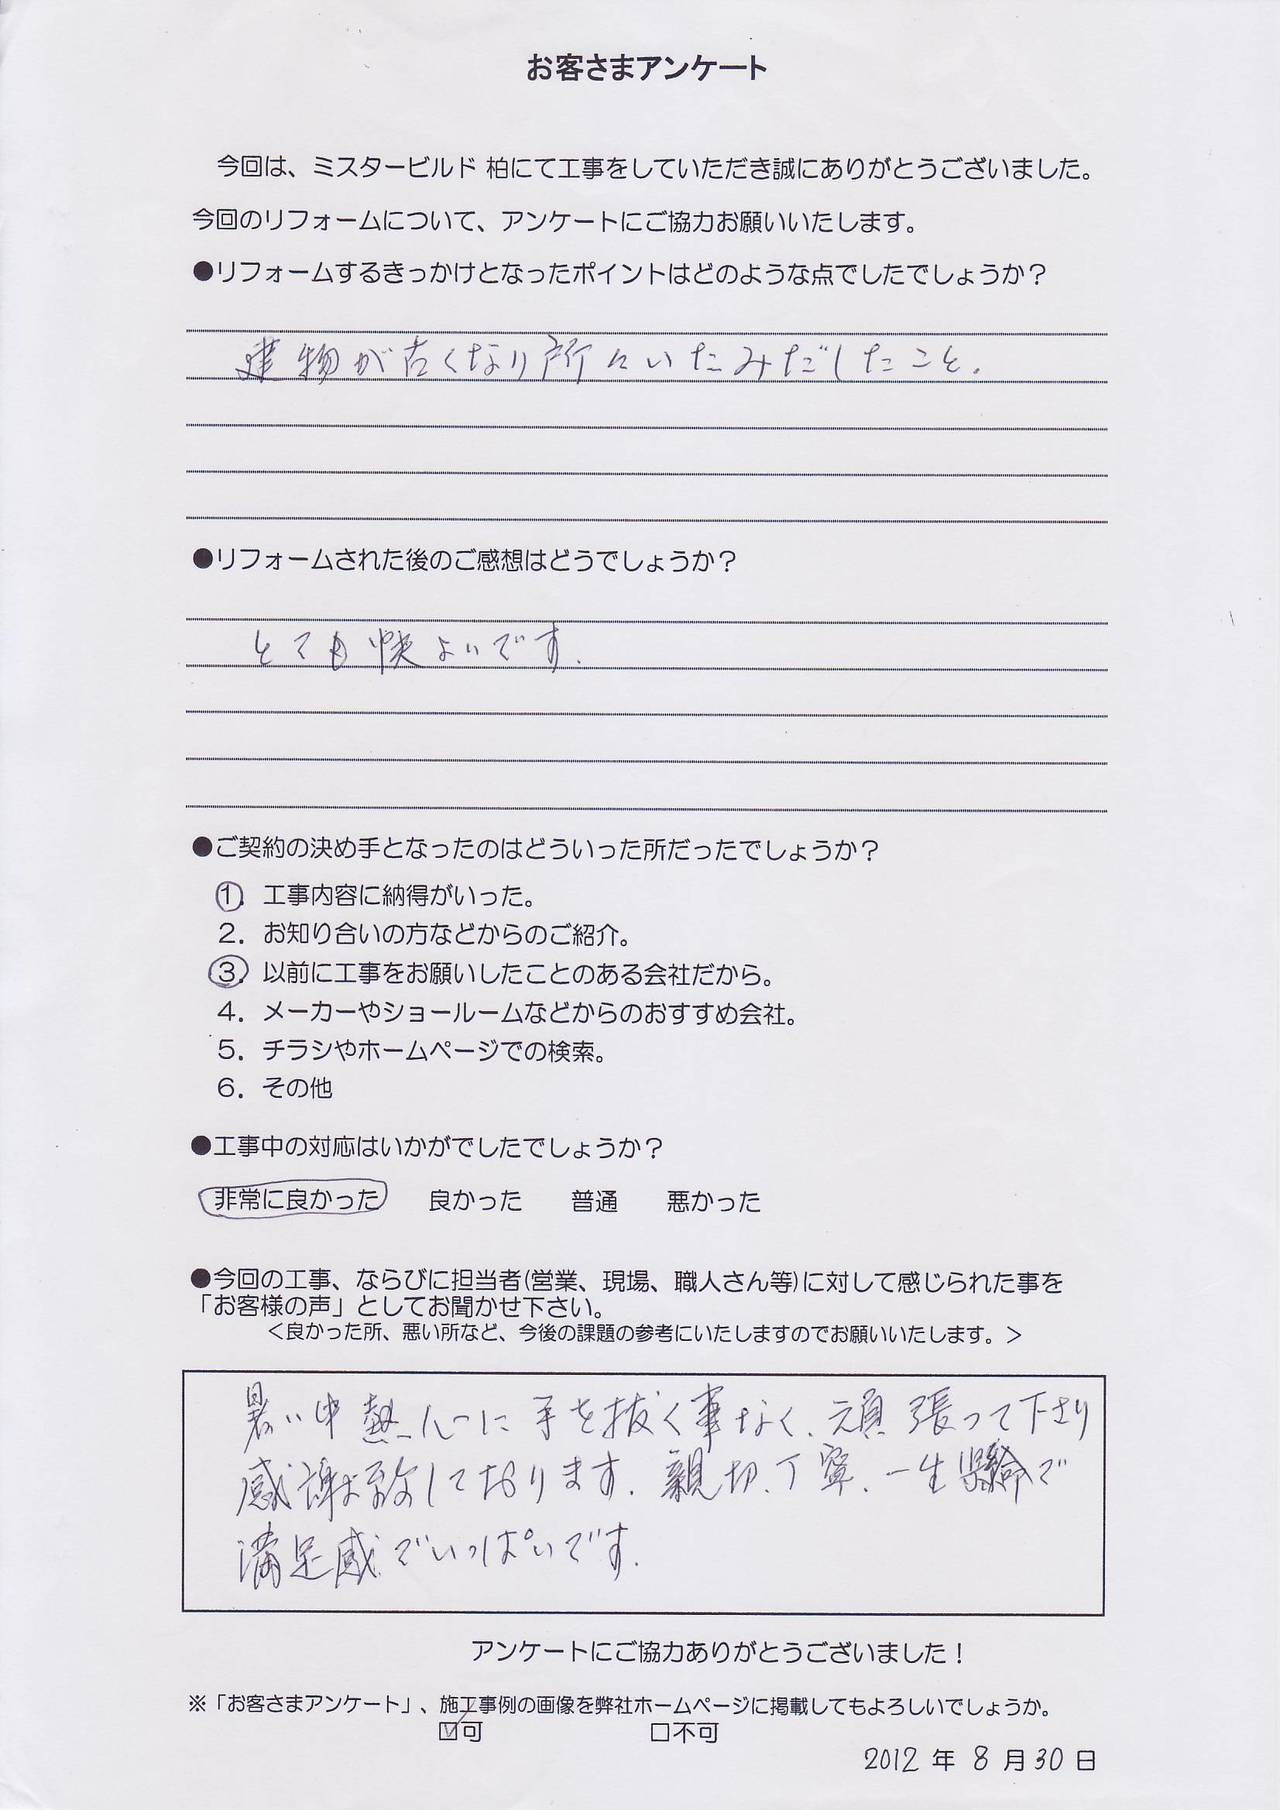 お客さまアンケート
今回は、ミスタービルド 柏にて工事をしていただき誠にありがとうございました。
今回のリフォームについて、アンケートにご協力お願いいたします。
●リフォームするきっかけとなったポイントはどのような点でしたでしょうか？
建物が古くなり所々いたみだしたこと.
●リフォームされた後のご感想はどうでしょうか？
とても快よいです.
●ご契約の決め手となったのはどういった所だったでしょうか？
1. 工事内容に納得がいった。
2. お知り合いの方などからのご紹介。
3. 以前に工事をお願いしたことのある会社だから。
4. メーカーやショールームなどからのおすすめ会社。
5. チラシやホームページでの検索。
6. その他
●工事中の対応はいかがでしたでしょうか？
非常に良かった 良かった 普通 悪かった
●今回の工事、ならびに担当者(営業、現場、職人さん等)に対して感じられた事を
「お客様の声」としてお聞かせ下さい。
＜良かった所、悪い所など、今後の課題の参考にいたしますのでお願いいたします。＞
暑い中熱心に手を抜く事なく、頑張って下さり
感謝お致しております. 親切、丁寧、一生懸命で
満足感でいっぱいです.
アンケートにご協力ありがとうございました！
※「お客さまアンケート」、施工事例の画像を弊社ホームページに掲載してもよろしいでしょうか。
☑可 □不可
2012 年 8 月 30 日